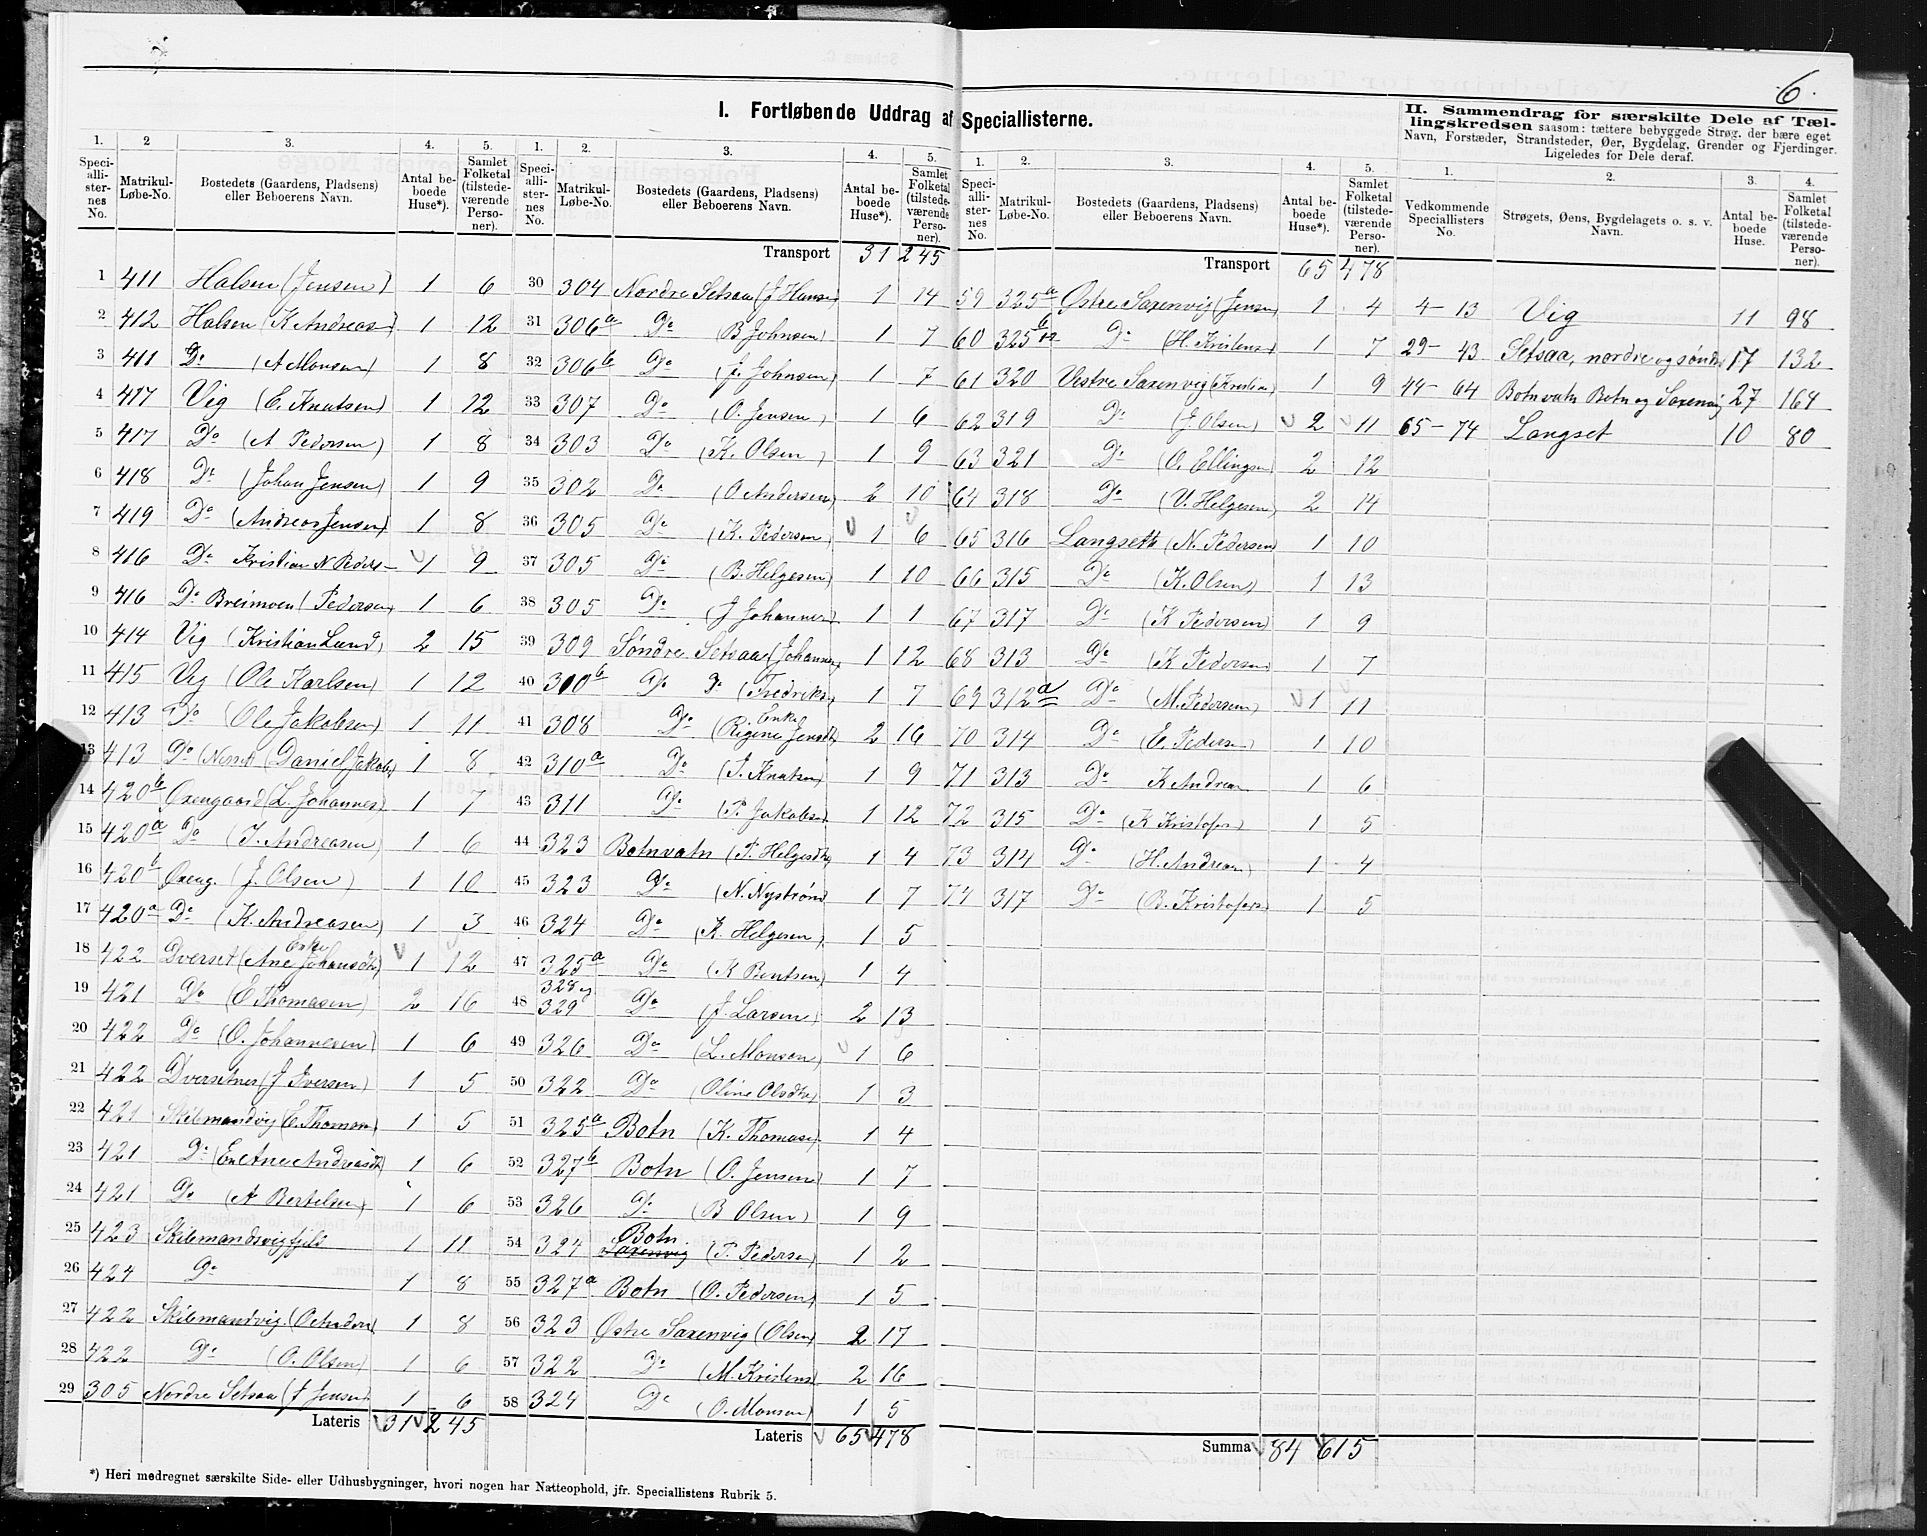 6.
I. Fortløbende Uddrag af Speciallisterne.
II. Sammendrag for særskilte Dele af Tællingskredsen saasom: tættere bebyggede Strøg, der bære eget Navn, Forstæder, Strandsteder, Øer, Bygdelag, Grender og Fjerdinger. Ligeledes for Dele deraf.
1. 2 3. 4. 5.
Speciallisternes No. Matrikul-Løbe-No. Bostedets (Gaardens, Pladsens) eller Beboerens Navn. Antal beboede Huse*). Samlet Folketal (tilstedeværende Personer).
1 411 Halsen (Jensen) 1 6
2 412 Halsen (K Andreas) 1 12
3 411 Do (A Monsen) 1 8
4 417 Vig (E. Knutsen) 1 12
5 417 Do (A Pedersen) 1 8
6 418 Do (Johan Jensen) 1 9
7 419 Do (Andreas Jensen) 1 8
8 416 Do Kristian N Peders- 1 9
9 416 Do Breimoen (Pedersen) 1 6
10 414 Vig (Kristian Lund) 2 15
11 415 Vig (Ole Karlsen) 1 12
12 413 Do (Ole Jakobsen) 1 11
13 413 Do (Nesset) (Daniel Jakobs) 1 8
14 420b Oxengaard (L. Johannes) 1 7
15 420a Do (I. Andreasen) 1 6
16 420b Oxeng. (J. Olsen) 1 10
17 420a Do (K. Andreasen) 1 3
18 422 Dverset (Enke Ane Johansdt) 1 12
19 421 Do (E Thomasen) 2 16
20 422 Do (O. Johannesen) 1 6
21 422 Dversetnes (J Iversen) 1 5
22 421 Skilsmandvig (E. Thomsen) 1 5
23 421 Do (En Ane Andreasdt) 1 6
24 421 Do (A Bertelsen) 1 6
25 423 Skilsmandsvigfjeld 1 11
26 424 Do 1 8
27 422 Skilsmandvig. 1 8
28 422 Do (O. Olsen) 1 6
29 305 Nordre Setsaa (J Jensen) 1 6
Lateris 31 245
1. 2. 3. 4. 5.
Speciallisternes No. Matrikul-Løbe-No. Bostedets (Gaardens, Pladsens) eller Beboerens Navn. Antal beboede Huse*). Samlet Folketal (tilstedeværende Personer).
Transport 31 245
30 304 Nordre Setsaa (J Hansen 1 14
31 306a Do (B Johnsen) 1 7
32 306b Do (J. Johnsen) 1 7
33 307 Do (O. Jensen) 1 6
34 303 Do (K. Olsen) 1 9
35 302 Do (O Andersen) 2 10
36 305 Do (K. Pedersen) 1 6
37 305 Do (B. Helgesen) 1 10
38 305 Do (J Johannes) 1 1
39 309 Søndre Setsaa (Johannes) 1 12
40 310b Do Do (Fredriks) 1 7
41 308 Do (Enke Regine Jensdt) 2 16
42 310a Do (I. Knutsen) 1 9
43 311 Do (P. Jakobsen) 1 12
44 323 Botnvatn (P. Helgesdt) 1 4
45 323 Do (N. Nystrøm) 1 7
46 324 Do (K. Helgesen) 1 5
47 325a Do (K Bentsen) 1 4
48 328 og 329 Do (J. Larsen) 2 13
49 326 Do (L. Monsen) 1 6
50 322 Do (Oline Olsdtr) 1 3
51 325a Botn (K. Thomas) 1 4
52 327b Botn (O. Jensen) 1 7
53 326 Do (B Olsen) 1 9
54 324 Saxenvig Botn (P. Pedersen) 1 2
55 327a Botn (O. Pedersen) 1 5
56 323 Østre Saxenvig (Olsen) 2 17
57 322 Do (M. Kristens) 2 16
58 324 Do (O. Monsen) 1 5
Lateris 65 478
1. 2. 3. 4. 5.
Speciallisternes No. Matrikul-Løbe-No. Bostedets (Gaardens, Pladsens) eller Beboerens Navn. Antal beboede Huse*). Samlet Folketal (tilstedeværende Personer).
Transport 65 478
59 325a Østre Saxenvig (Jensen) 1 4
60 325b Do (H. Kristens) 1 7
61 320 Vestre Saxenvig (Kristin) 1 9
62 319 Do (J. Olsen) 2 11
63 321 Do (O. Ellingsen) 2 12
64 318 Do (U. Helgesen) 2 14
65 316 Langseth (N. Pedersen) 1 10
66 315 Do (K. Olsen) 1 13
67 317 Do (K Pedersen) 1 9
68 313 Do (K Pedersen) 1 7
69 312a Do (M. Pedersen) 1 11
70 314 Do (E. Pedersen) 1 10
71 313 Do K Andreas 1 6
72 315 Do (K Kristofers) 1 5
73 314 Do (H. Andreas) 1 4
74 317 Do (B. Kristofers) 1 5
Summa 84 615
1. 2. 3. 4.
Vedkommende Speciallisters No. Strøgets, Øens, Bygdelagets o. s. v. Navn. Antal beboede Huse. Samlet Folketal (tilstedeværende Personer).
4- 13 Vig 11 98
29- 43 Setsaa, nordre og søndre 17 132
44- 64 Botnvatn Botn og Saxenvig 27 164
65- 74 Langset 10 80
*) Heri medregnet særskilte Side- eller Udhusbygninger, hvori nogen har Natteophold, jfr. Speciallistens Rubrik 5.